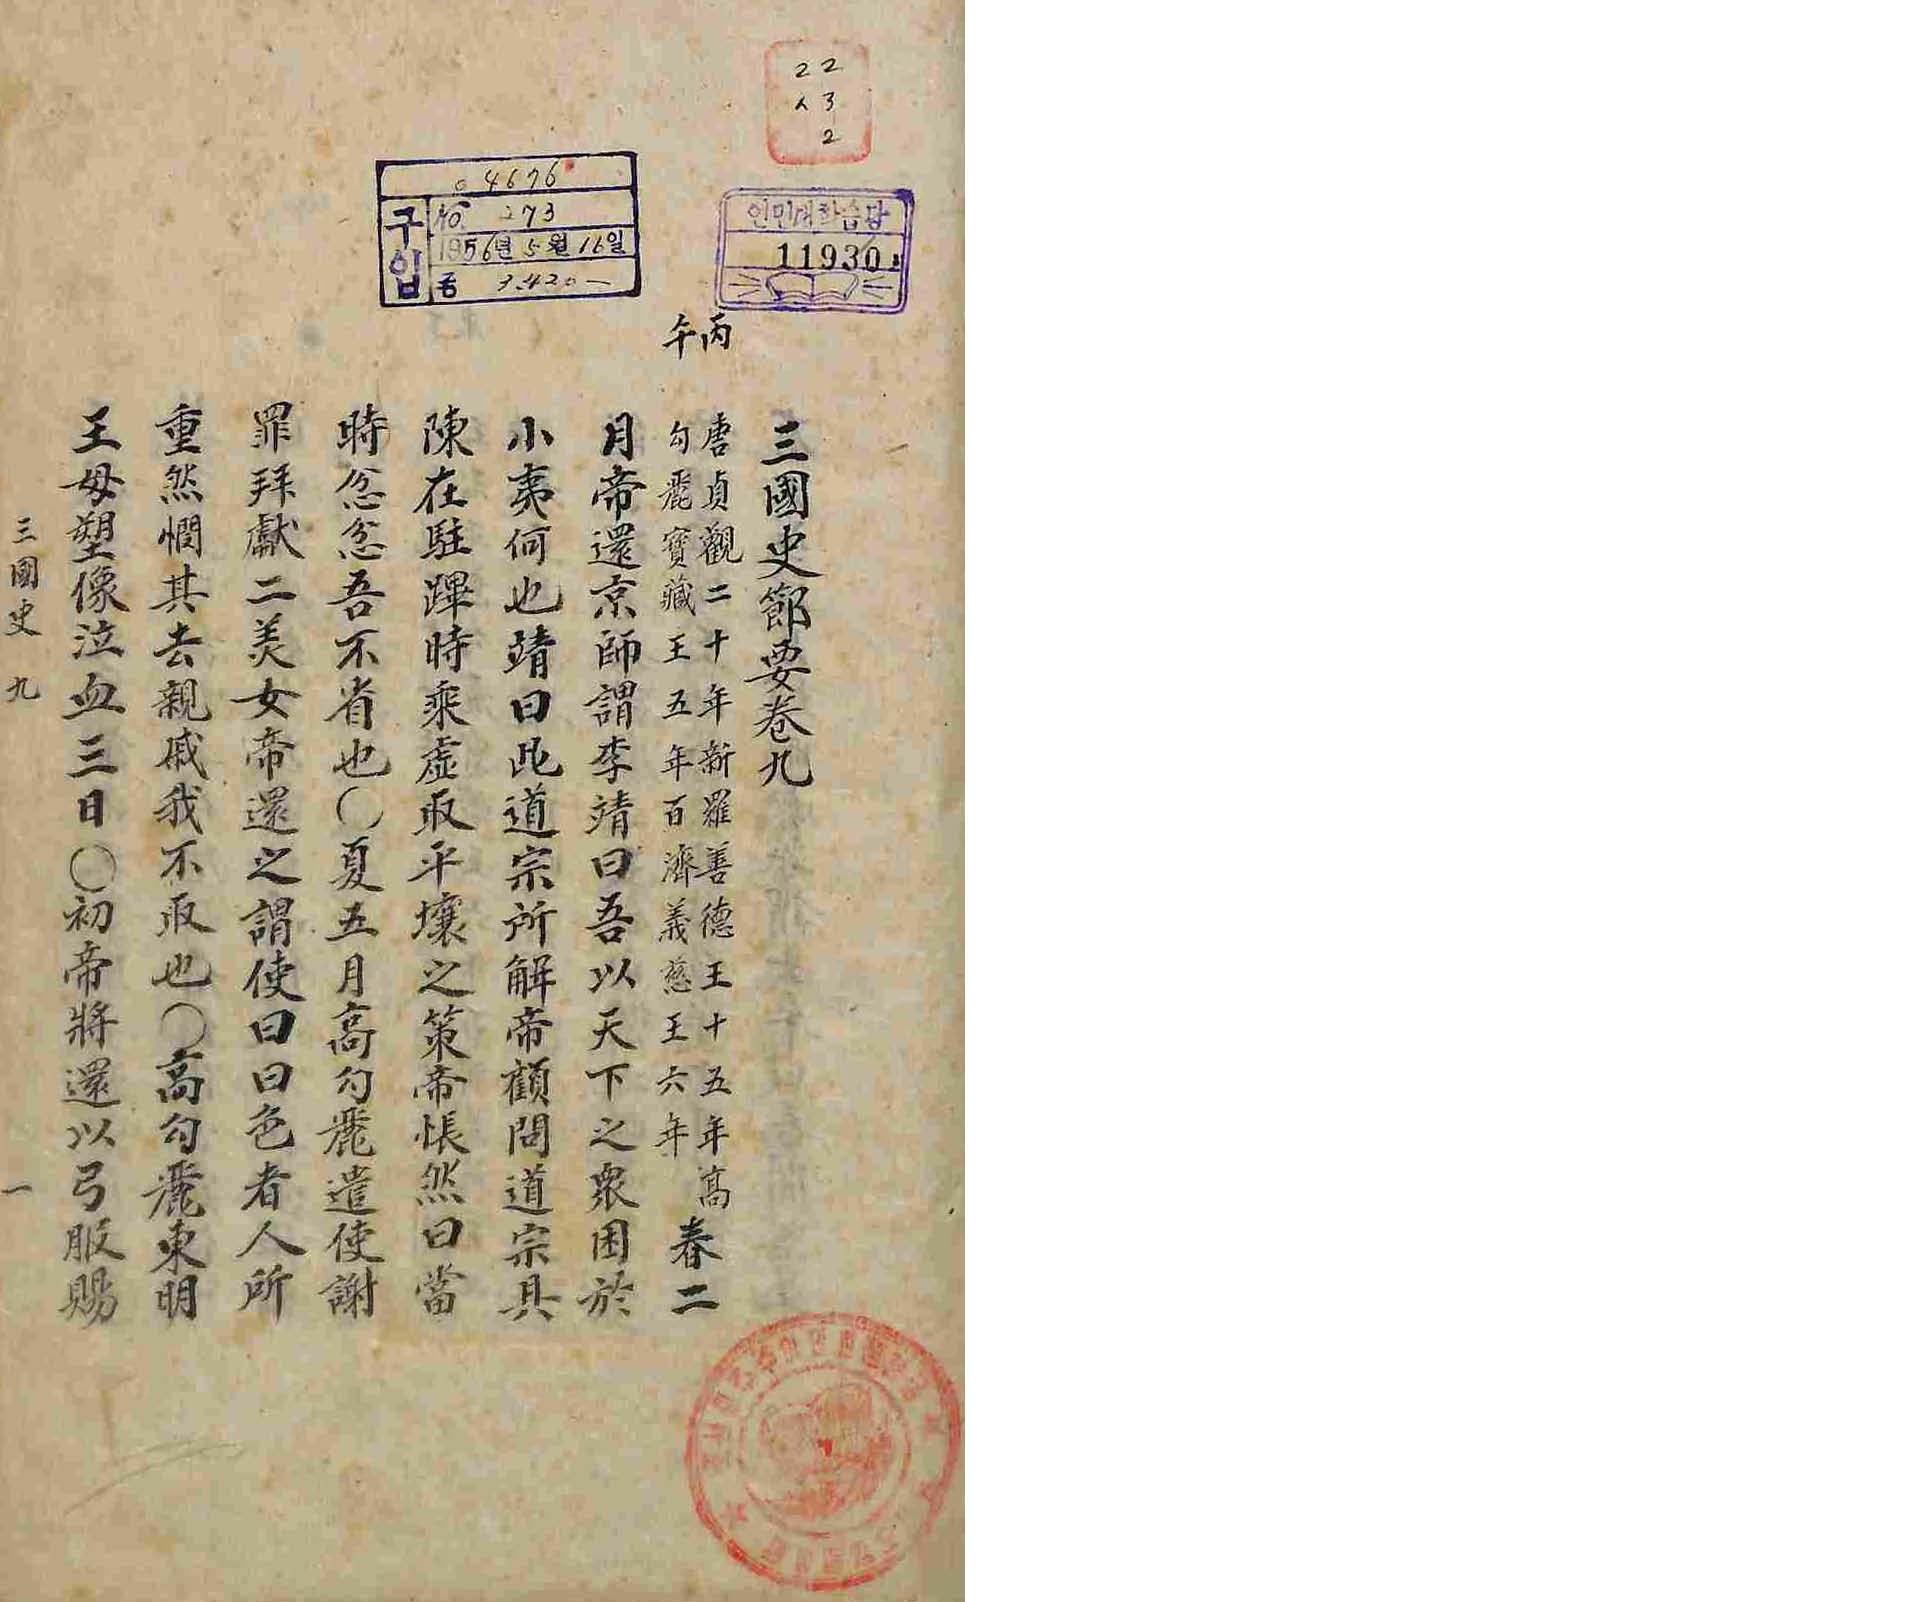 22
ㅅ 3
2
인민대학습당
11930
4676
구입
No. 273
1956년 5월 16일
丙午
三國史節要卷九
唐貞觀二十年新羅善德王十五年高
勾麗寶藏王五年百濟義慈王六年
春二
月帝還京師謂李靖曰吾以天下之衆困於
小夷何也靖曰此道宗所解帝顧問道宗具
陳在駐蹕時乘虛取平壤之策帝悵然曰當
時忩忩吾不省也○夏五月高勾麗遣使謝
罪拜獻二美女帝還之謂使曰曰色者人所
重然憫其去親戚我不取也○高勾麗東明
王母塑像泣血三日○初帝將還以弓服賜
三國史 九
一